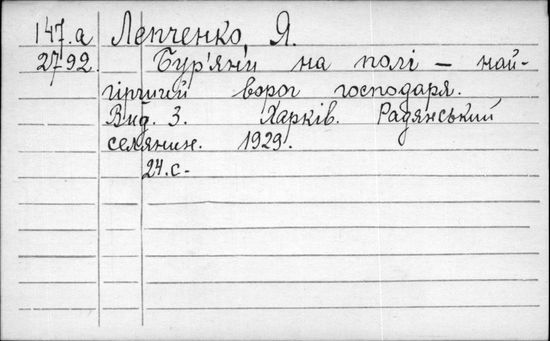 147.a Лепченко, Я.
2792. Бур'яни на полі — най-
гірший ворог господаря.
Вид. 3. Харків. Радянський
селянин. 1929.
24.с.